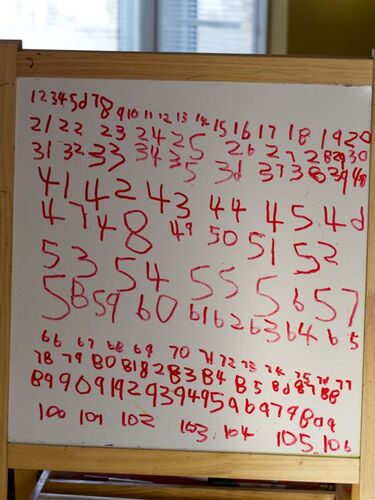 1 2 3 4 5 6 7 8 9 10 11 12 13 14 15 16 17 18 19 20
21 22 23 24 25 26 27 28 29 30
31 32 33 34 35 36 37 38 39 40
41 42 43 44 45 46
47 48 49 50 51 52
53 54 55 56 57
58 59 60 61 62 63 64 65
66 67 68 69 70 71 72 73 74 75 76 77
78 79 80 81 82 83 84 85 86 87 88
89 90 91 92 93 94 95 96 97 98 99
100 101 102 103 104 105 106